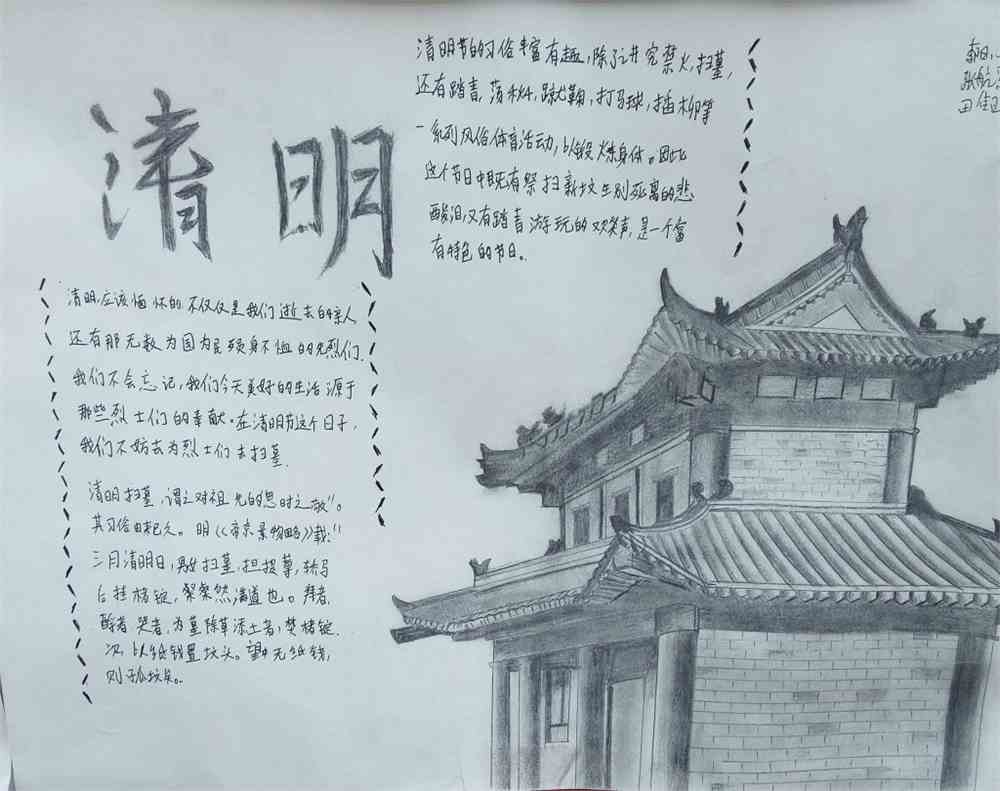 清明
清明节的习俗丰富有趣,除了讲究禁火,扫墓,
还有踏青,荡秋千,蹴鞠,打马球,插柳等
一系列风俗体育活动,以锻炼身体。因此
这个节日中既有祭扫新坟生别死离的悲
酸泪,又有踏青游玩的欢笑声,是一个富
有特色的节日。
清明,应该缅怀的不仅仅是我们逝去的亲人
还有那无数为国为民殒身不恤的先烈们,
我们不会忘记,我们今天美好的生活源于
那些烈士们的奉献。在清明节这个日子,
我们不妨去为烈士们去扫墓.
清明扫墓,谓之对祖先的思时之敬"。
其习俗由来已久。明《帝京景物略》载:"
三月清明日,男女扫墓,担提尊,轿马
后挂楮锭,粲粲然满道也。拜者,
酹者,哭者,为墓除草添土者,焚楮锭.
次,以纸钱置坟头。望中无纸钱,
则孤坟矣。